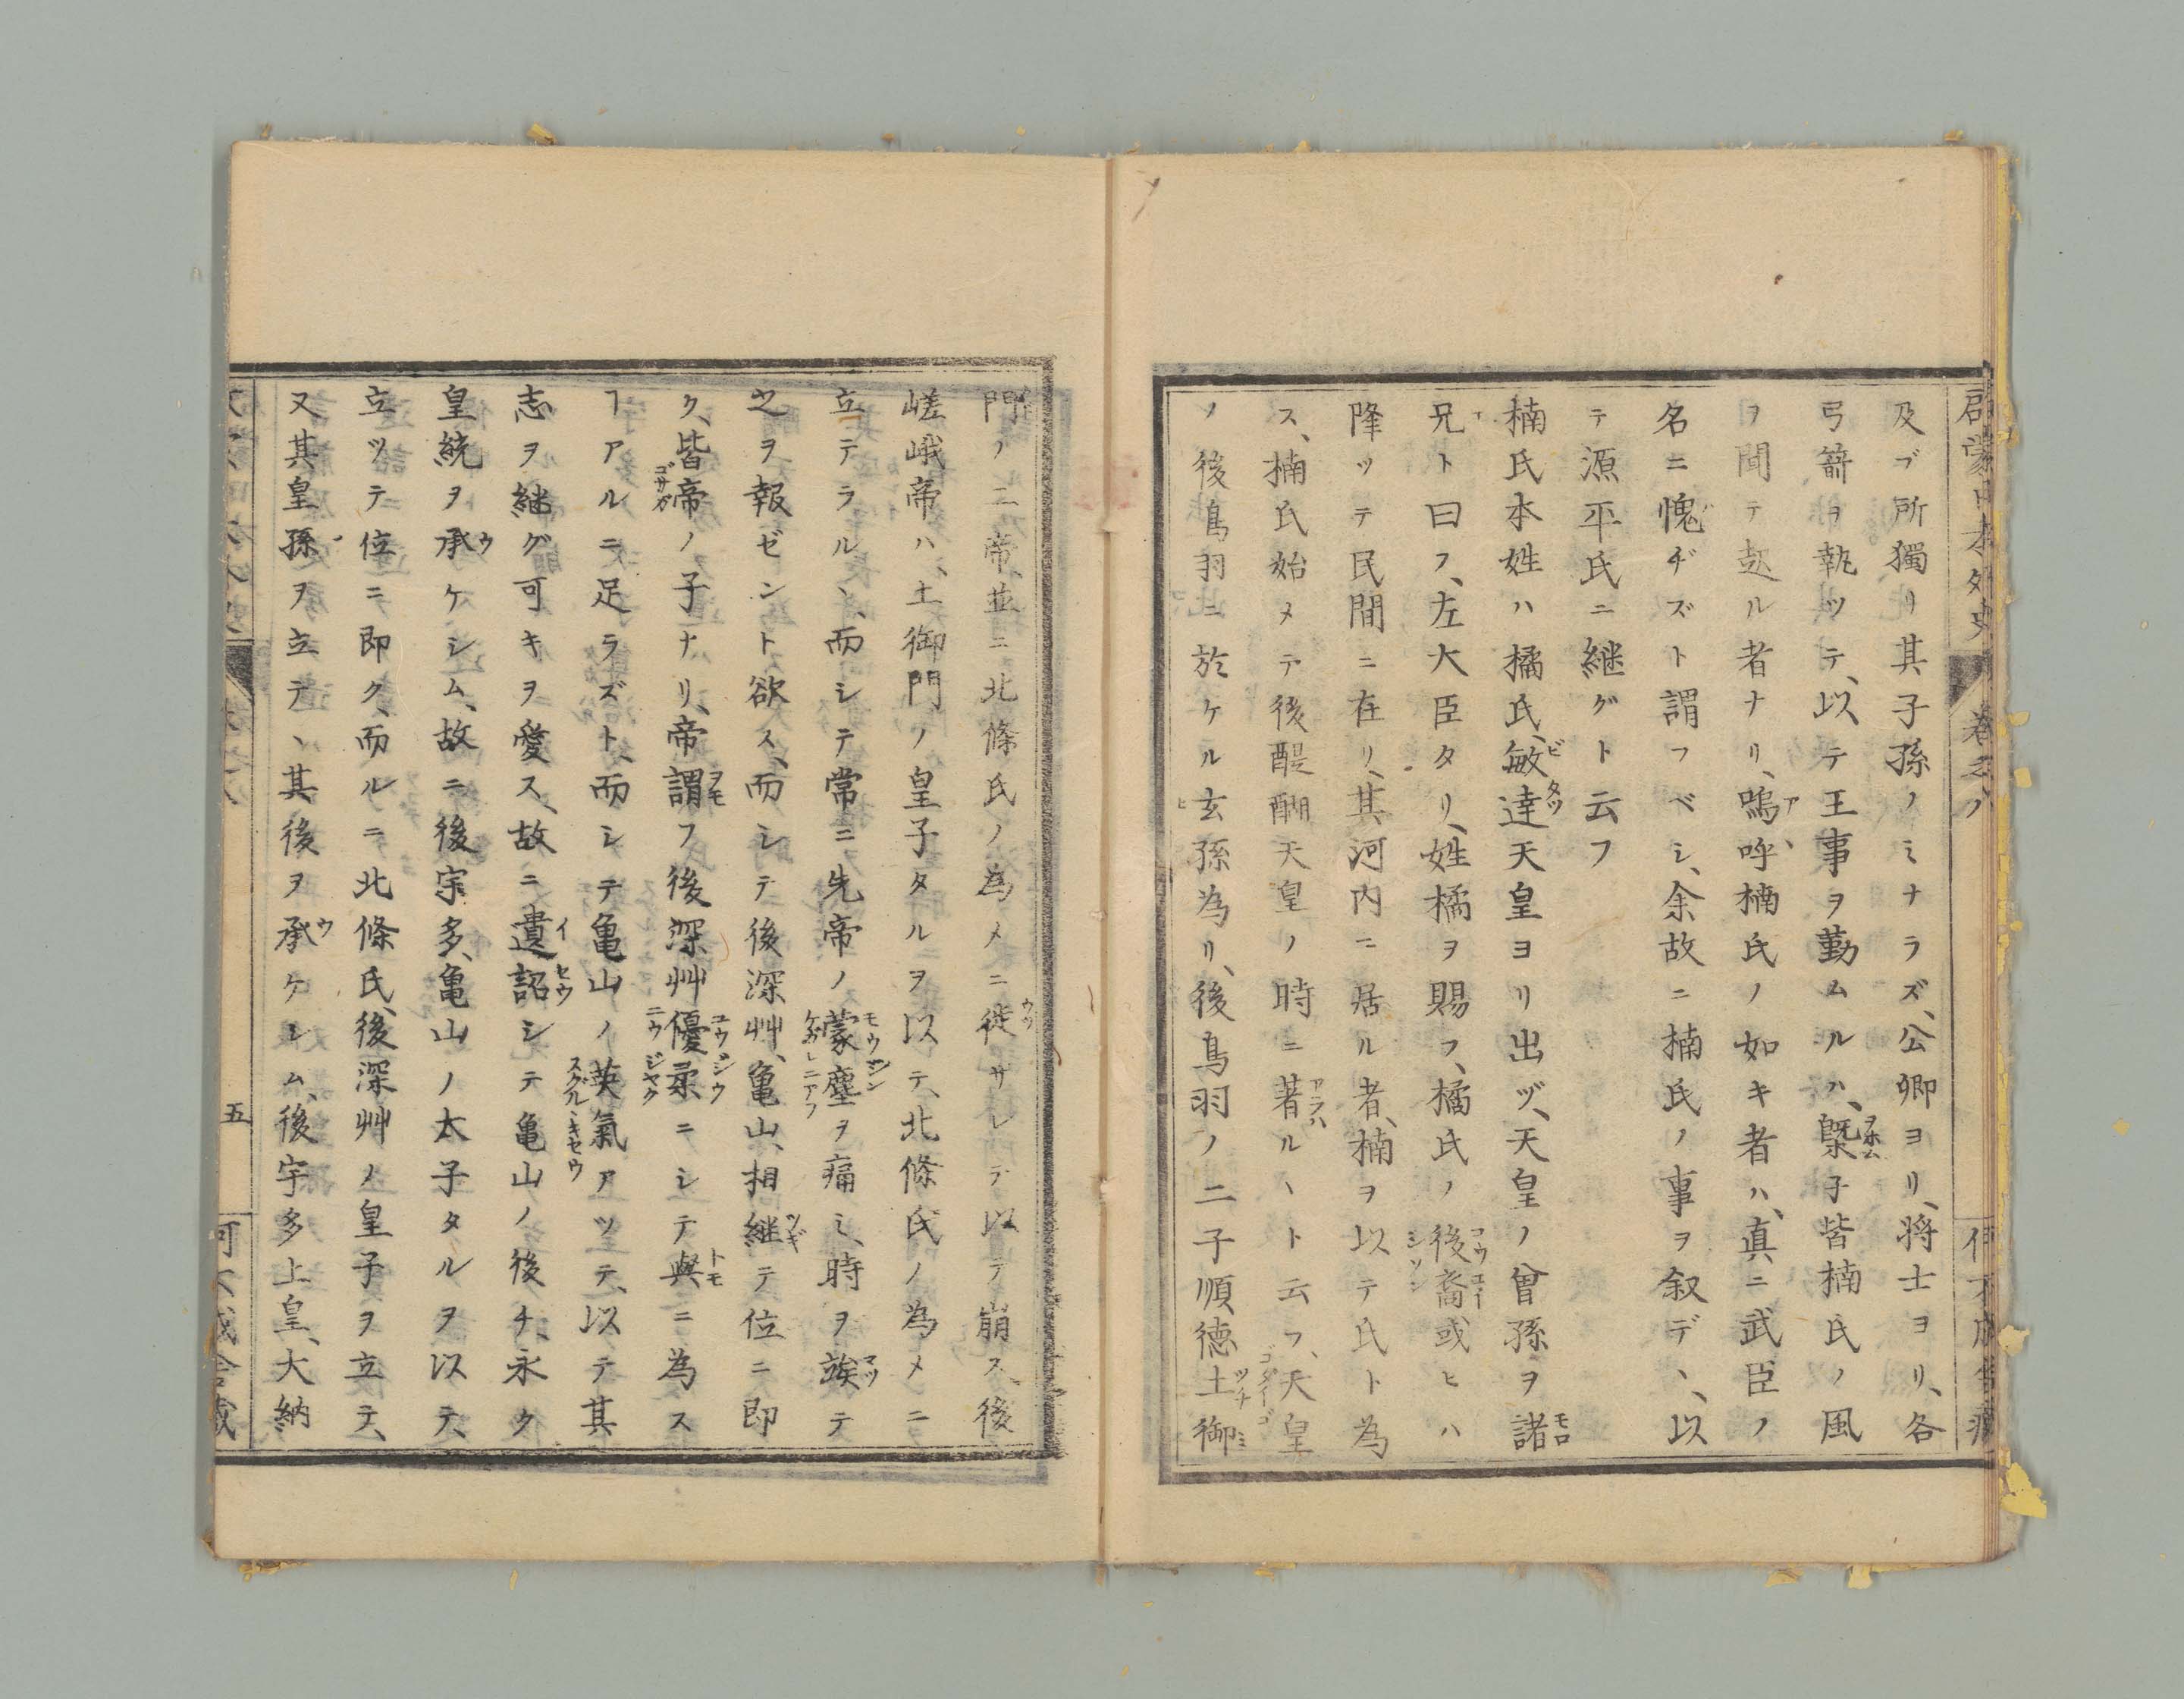 啓蒙日本外史 巻之八
及ブ所獨リ其子孫ノミナラズ、公卿ヨリ、将士ヨリ、各
弓箭ヲ執ツテ、以テ王事ヲ勤ムルハ、槩子皆楠氏ノ風
ヲ聞テ起ル者ナリ、嗚呼楠氏ノ如キ者ハ、真ニ武臣ノ
名ニ愧ヂズト謂フベシ、余故ニ楠氏ノ事ヲ叙デ、、以
テ源平氏ニ継グト云フ
楠氏本姓ハ橘氏、敏達天皇ヨリ出ヅ、天皇ノ曾孫ヲ諸
兄ト曰フ、左大臣タリ、姓橘ヲ賜フ、橘氏ノ後裔或ヒハ
降ツテ民間ニ在リ、其河内ニ居ル者、楠ヲ以テ氏ト為
ス、楠氏始メテ後醍醐天皇ノ時ニ著ルヽト云フ、天皇
ノ後鳥羽ニ於ケル玄孫為リ、後鳥羽ノ二子順徳土御
門ノ二帝、並ニ北條氏ノ為メニ徙サレテ以テ崩ス、後
嵯峨帝ハ、土御門ノ皇子タルヲ以テ、北條氏ノ為メニ
立テラルヽ、而シテ常ニ先帝ノ蒙塵ヲ痛ミ、時ヲ竢テ
之ヲ報ゼント欲ス、而シテ後深艸、亀山、相継テ位ニ即
ク、皆帝ノ子ナリ、帝謂フ後深艸優柔ニシテ與ニ為ス
ヿアルニ足ラズト、而シテ亀山ノ英氣アツテ、以テ其
志ヲ継グ可キヲ愛ス、故ニ遺詔シテ亀山ノ後チ、永ク
皇統ヲ承ケシム、故ニ後宗多、亀山ノ太子タルヲ以テ、
立ツテ位ニ即ク、而ルニ北條氏、後深艸ノ皇子ヲ立テ、
又其皇孫ヲ立テ、其後ヲ承ケシム、後宇多上皇、大納
五